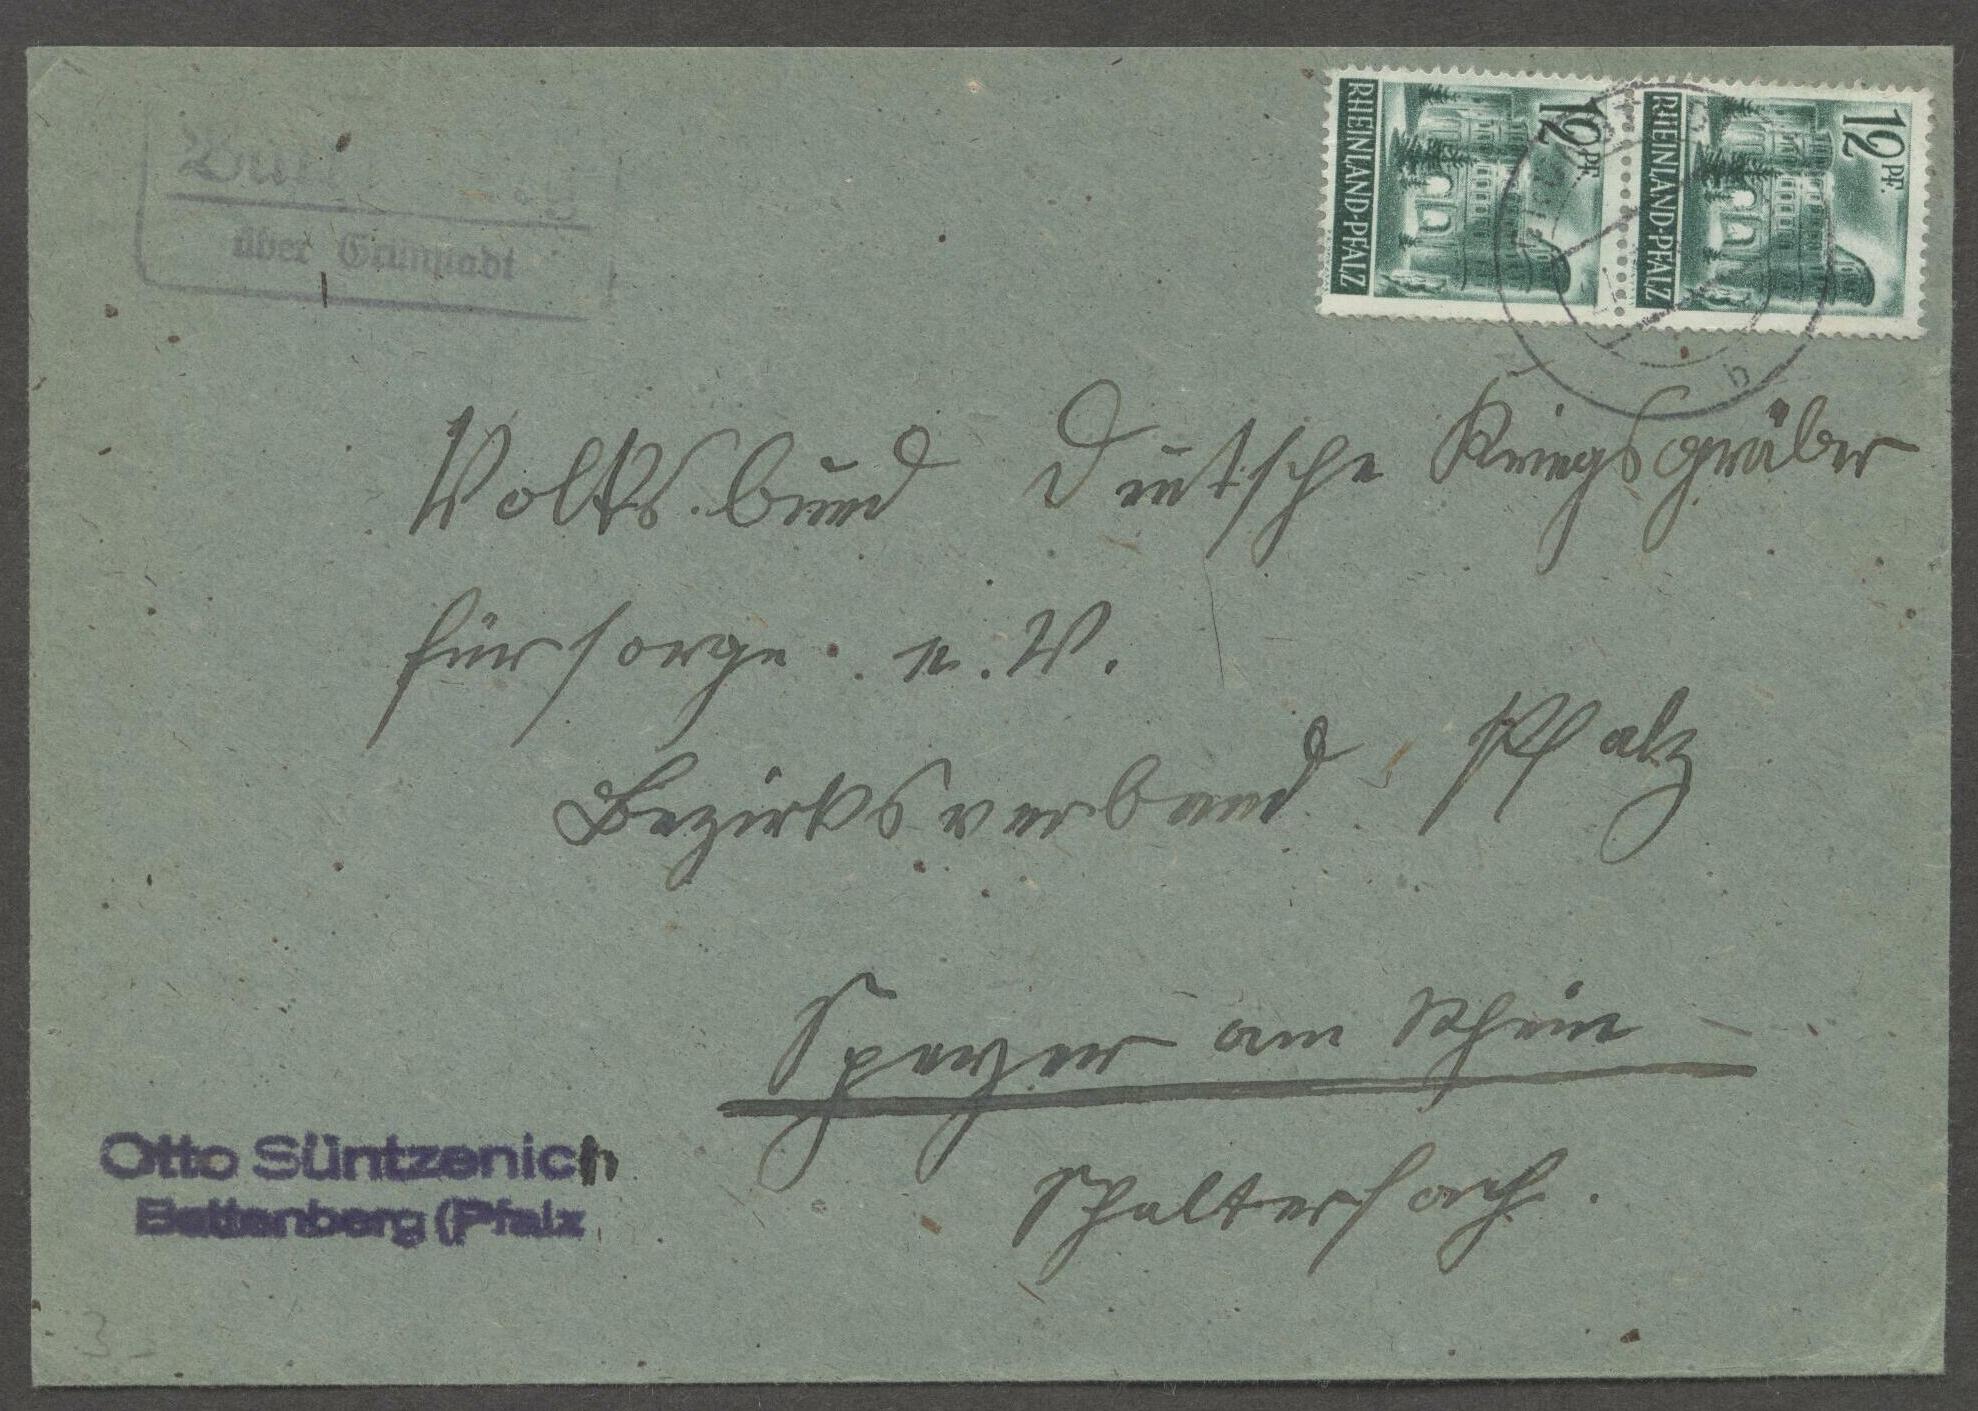 über Grünstadt
12 PF.
RHEINLAND-PFALZ
12 PF.
RHEINLAND-PFALZ
b
Volksbund Deutsche Kriegsgräber
fürsorge e. V.
Bezirksverband Pfalz
Speyer am Rhein
Schalterfach.
Otto Süntzenich
Battenberg (Pfalz
3